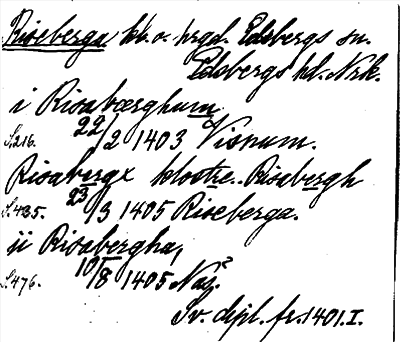 Riseberga kb. o. hrgd. Edsbergs sn.
Edsbergs hd. Nrk.
i Risabærghum
S. 216. 22/2 1403 Visnum.
Risabergx klostre. Risabergh
S. 435. 23/3 1405 Riseberga.
ij Risabergha,
S. 476. 10/8 1405
Sv. dipl. fr. 1401. I.